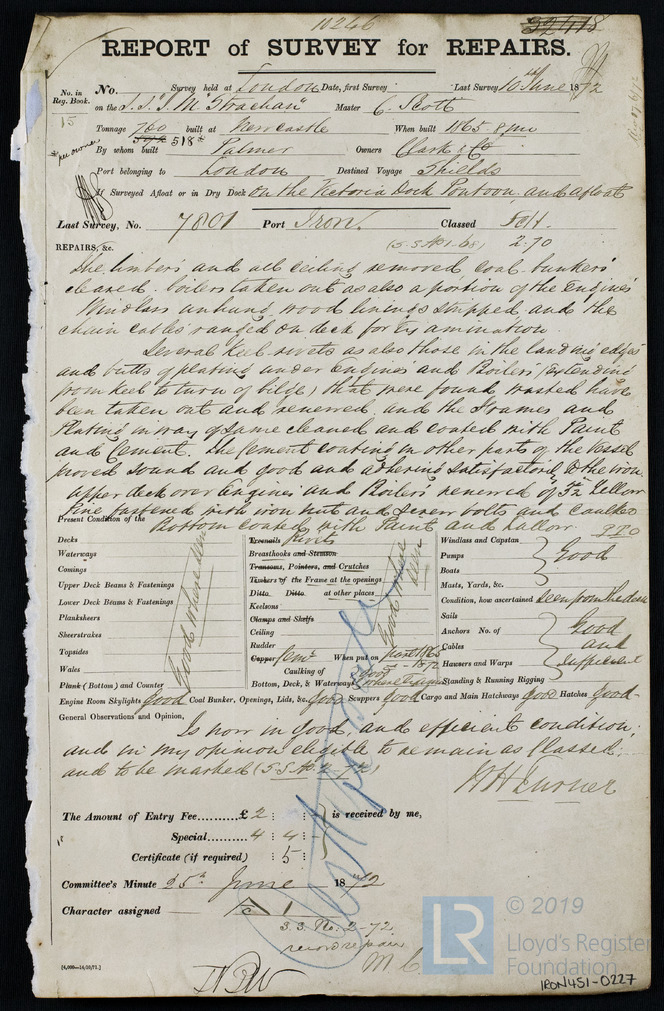 10246
32418
REPORT of SURVEY for REPAIRS.
No. in Reg. Book. No. Survey held at London Date, first Survey Last Survey 10 June 1872
15 on the S.S. "J. M. Strachan" Master C. Scott
Tonnage 760 built at Newcastle When built 1865. 8 mo
592 518*
*per owner
By whom built Palmer Owners Clark & Co
Port belonging to London Destined Voyage Shields
If Surveyed Afloat or in Dry Dock on the Victoria Dock Pontoon and afloat
Last Survey, No. 7801 Port Iron. Classed
(S.S. No 1-68) 2.70
REPAIRS, &c.
The limbers and all ceiling removed coal bunkers
cleared. boilers taken out as also a portion of the Engines
Windlass unhung wood linings stripped and the
chain cables ranged on deck for Examination.
Several Keel rivets as also those in the landing edges
and butts of plating under Engines and Boilers (extending
from keel to turn of bilge) that were found wasted have
been taken out and renewed. and the Frames and
Plating in way of same cleaned and coated with Paint
and Cement. The Cement coating in other parts of the Vessel
proved sound and good and adhering satisfactorily to the iron
Upper deck over Engines and Boilers renewed of 3½ Yellow
Pine fastened with iron nut and screw bolts and caulked
Bottom coated with Paint and Tallow. P.T.O
Present Condition of the
Decks
Waterways
Comings
Upper Deck Beams & Fastenings
Lower Deck Beams & Fastenings
Planksheers
Sheerstrakes
Topsides
Wales
Plank (Bottom) and Counter
Good where seen
Treenails Rivets
Breasthooks and Stemson
Transoms, Pointers, and Crutches
Timbers of the Frame at the openings
Ditto Ditto at other places
Keelsons
Clamps and Shelfs
Ceiling
Rudder
Copper Cemt When put on part 1865
5-1872
Caulking of Bottom, Deck, & Waterways Good where seen
Good where seen
Windlass and Capstan
Pumps
Boats
Good
Masts, Yards, &c.
Condition, how ascertained seen from the deck
Sails
Anchors No. of
Cables
Hausers and Warps
Good and sufficient
Standing & Running Rigging
Engine Room Skylights Good Coal Bunker, Openings, Lids, &c. Good Scuppers Good Cargo and Main Hatchways Good Hatches Good
General Observations and Opinion,
Is now in good, and efficient condition,
and in my opinion eligible to remain as Classed,
and to be marked (S.S No 2 72)
W H Turner
The Amount of Entry Fee.........£ 2 : : is received by me,
Special......... 4 : 4 :
Certificate (if required) : 5 :
Committee's Minute 25th June 1872
Character assigned A 1
S.S. No. 2-72
record repairs
M C
[4,000—14/10/71.]
LR
© 2019
Lloyd's Register
Foundation
IRON451-0227